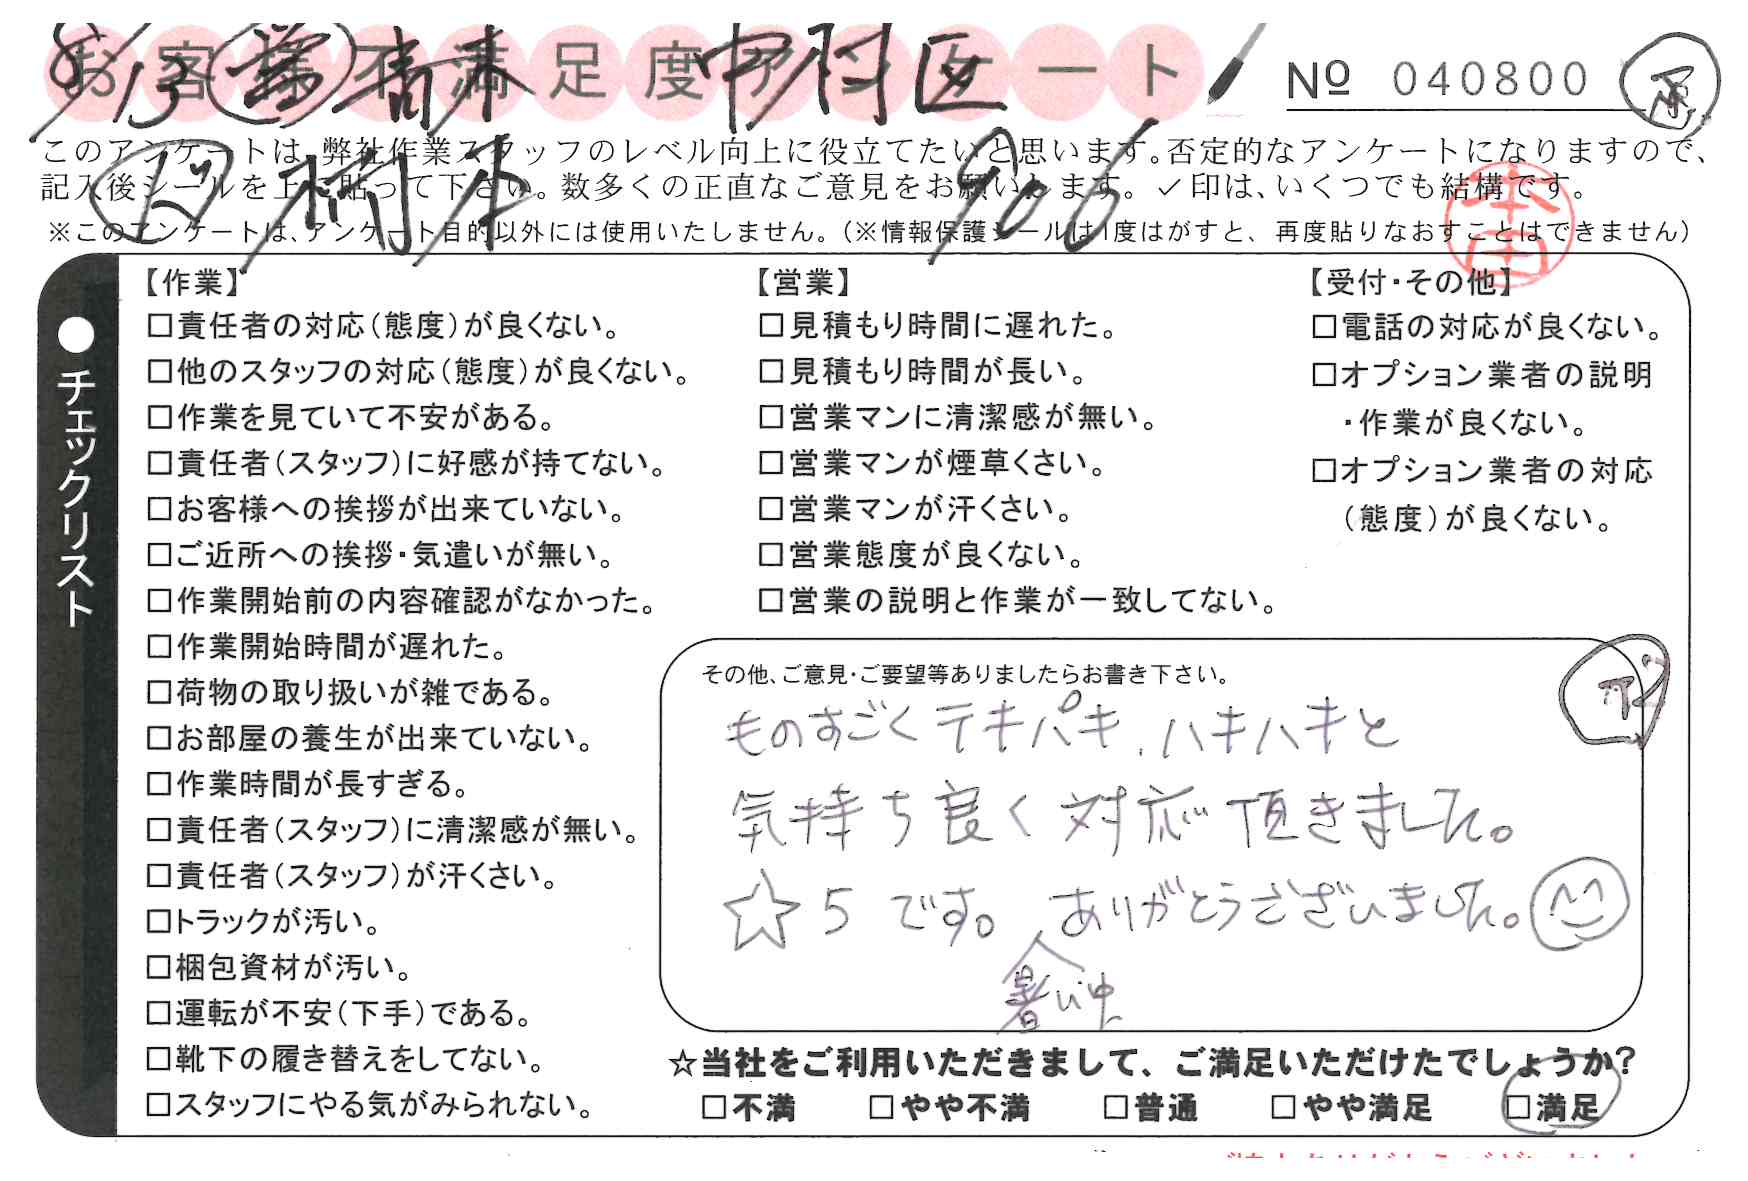 お客様不満足度アンケート
8/13 営 青木 中村区
№ 040800
原
このアンケートは、弊社作業スタッフのレベル向上に役立てたいと思います。否定的なアンケートになりますので、
記入後シールを上に貼って下さい。数多くの正直なご意見をお願いします。✓印は、いくつでも結構です。
※このアンケートは、アンケート目的以外には使用いたしません。（※情報保護シールは1度はがすと、再度貼りなおすことはできません）
村本 906
本田
●チェックリスト
【作業】
□責任者の対応（態度）が良くない。
□他のスタッフの対応（態度）が良くない。
□作業を見ていて不安がある。
□責任者（スタッフ）に好感が持てない。
□お客様への挨拶が出来ていない。
□ご近所への挨拶・気遣いが無い。
□作業開始前の内容確認がなかった。
□作業開始時間が遅れた。
□荷物の取り扱いが雑である。
□お部屋の養生が出来ていない。
□作業時間が長すぎる。
□責任者（スタッフ）に清潔感が無い。
□責任者（スタッフ）が汗くさい。
□トラックが汚い。
□梱包資材が汚い。
□運転が不安（下手）である。
□靴下の履き替えをしてない。
□スタッフにやる気がみられない。
【営業】
□見積もり時間に遅れた。
□見積もり時間が長い。
□営業マンに清潔感が無い。
□営業マンが煙草くさい。
□営業マンが汗くさい。
□営業態度が良くない。
□営業の説明と作業が一致してない。
【受付・その他】
□電話の対応が良くない。
□オプション業者の説明
・作業が良くない。
□オプション業者の対応
（態度）が良くない。
その他、ご意見・ご要望等ありましたらお書き下さい。
ものすごくテキパキ、ハキハキと
気持ち良く対応頂きました。
☆5です。ありがとうございました。
暑い中
☆当社をご利用いただきまして、ご満足いただけたでしょうか?
□不満 □やや不満 □普通 □やや満足 □満足